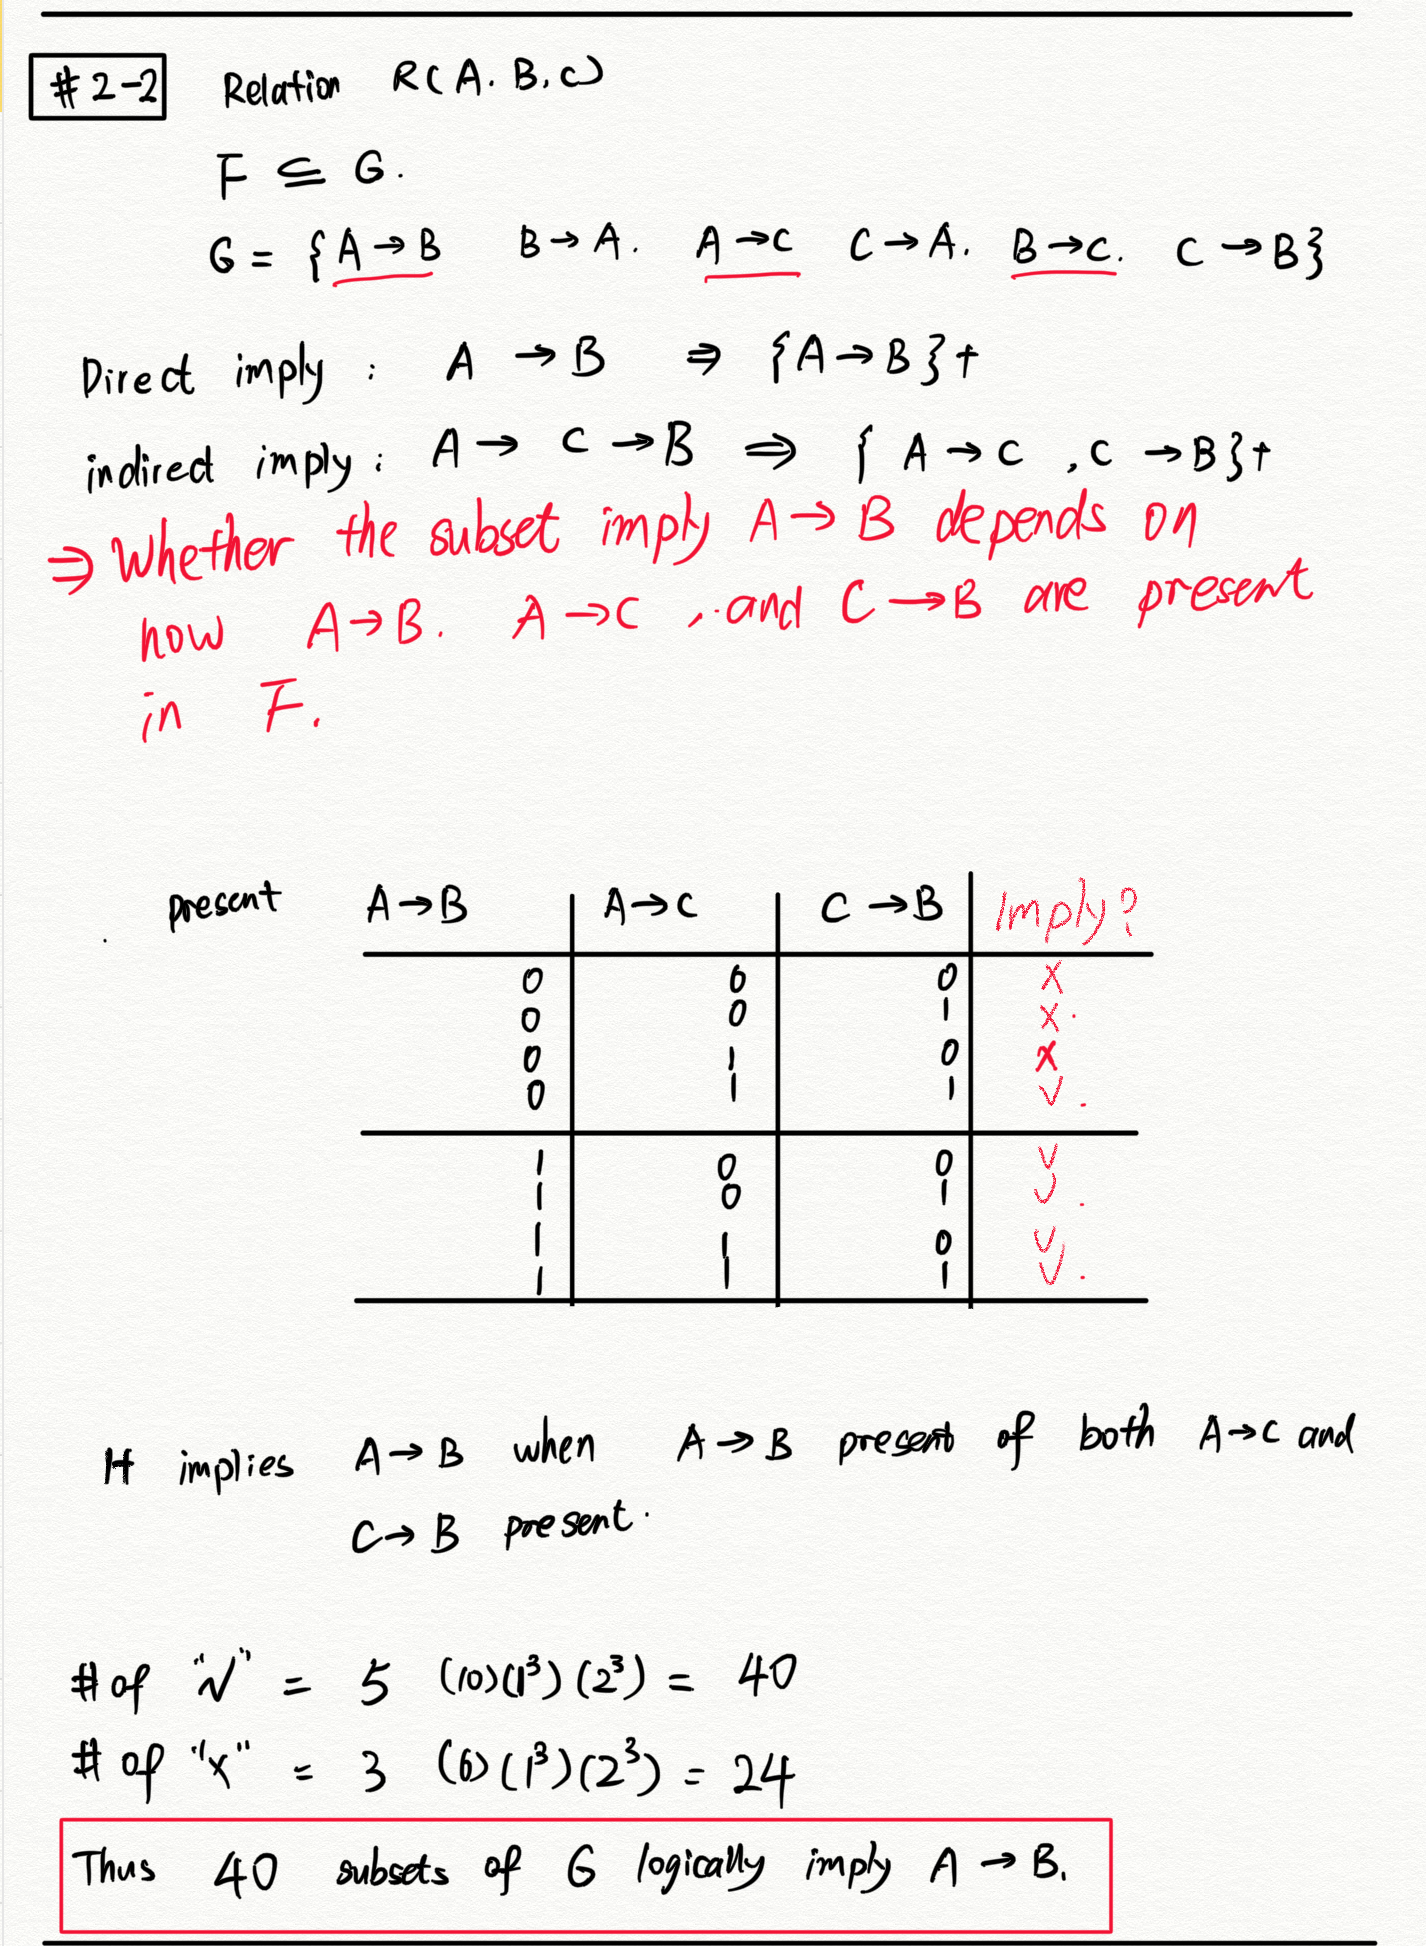 #2-2 Relation R(A. B, C)
F ⊆ G.
G = {A → B B → A. A → C C → A. B → C. C → B}
Direct imply : A → B ⇒ {A → B}+
indirect imply : A → C → B ⇒ { A → C , C → B}+
⇒ Whether the subset imply A → B depends on
how A → B. A → C , and C → B are present
in F.
present A → B A → C C → B Imply?
0 0 0 X
0 0 1 X.
0 1 0 X
0 1 1 V.
1 0 0 V
1 0 1 V.
1 1 0 V
1 1 1 V.
It implies A → B when A → B present of both A → C and
C → B present.
# of "√" = 5 (10)(1³)(2³) = 40
# of "x" = 3 (6)(1³)(2³) = 24
Thus 40 subsets of G logically imply A → B.